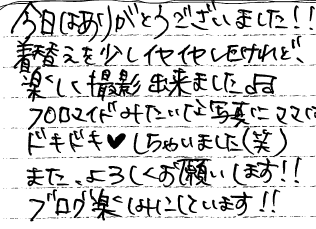 今日はありがとうございました!!
着替えを少しイヤイヤしたけれど、
楽しく撮影出来ました♫
ブロマイドみたいな写真にママは
ドキドキ♥しちゃいました(笑)
また、よろしくお願いします!!
ブログ楽しみにしています!!